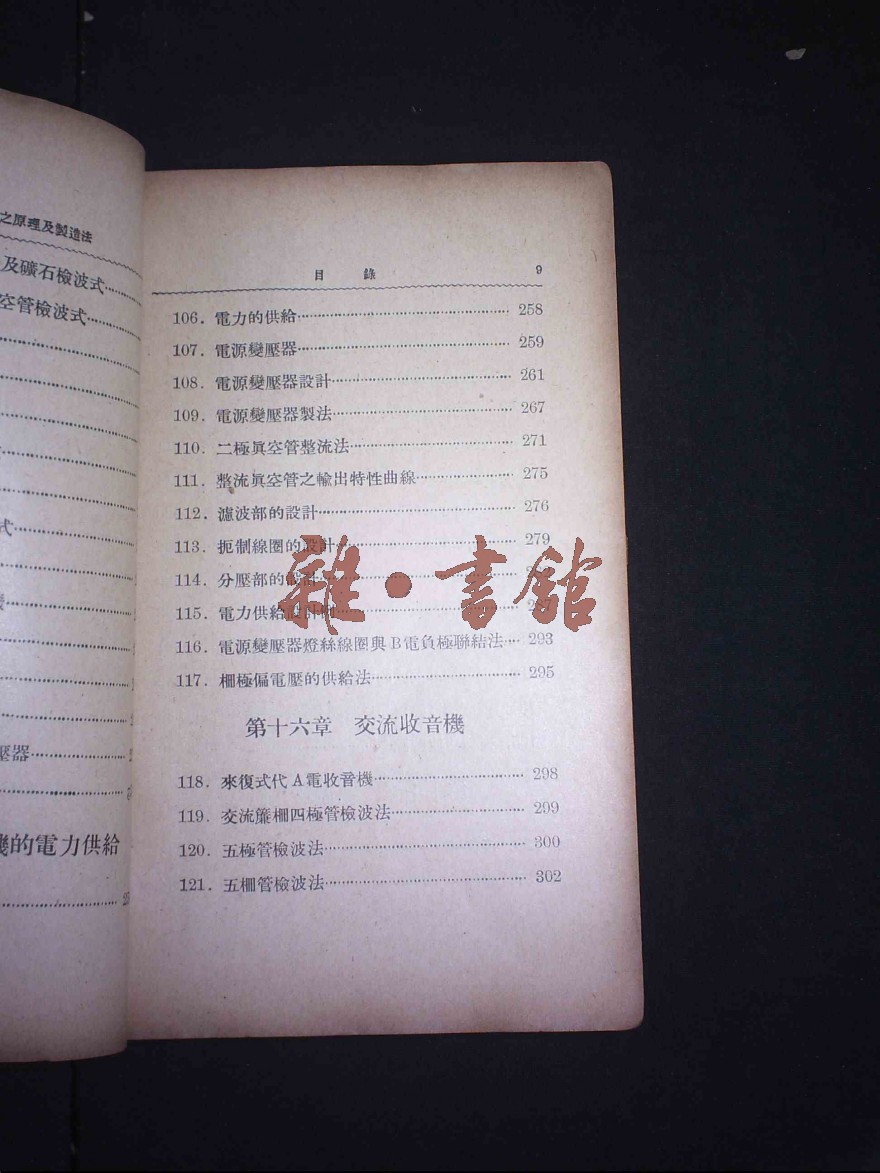 之原理及製造法
及礦石檢波式
空管檢波式
式
機
壓器
機的電力供給
目 錄 9
106. 電力的供給 258
107. 電源變壓器 259
108. 電源變壓器設計 261
109. 電源變壓器製法 267
110. 二極眞空管整流法 271
111. 整流眞空管之輸出特性曲線 275
112. 濾波部的設計 276
113. 扼制線圈的設計 279
114. 分壓部的設計
115. 電力供給設計例
116. 電源變壓器燈絲線圈與B電負極聯結法 293
117. 柵極偏電壓的供給法 295
第十六章 交流收音機
118. 來復式代A電收音機 298
119. 交流簾柵四極管檢波法 299
120. 五極管檢波法 300
121. 五柵管檢波法 302
雜·書館